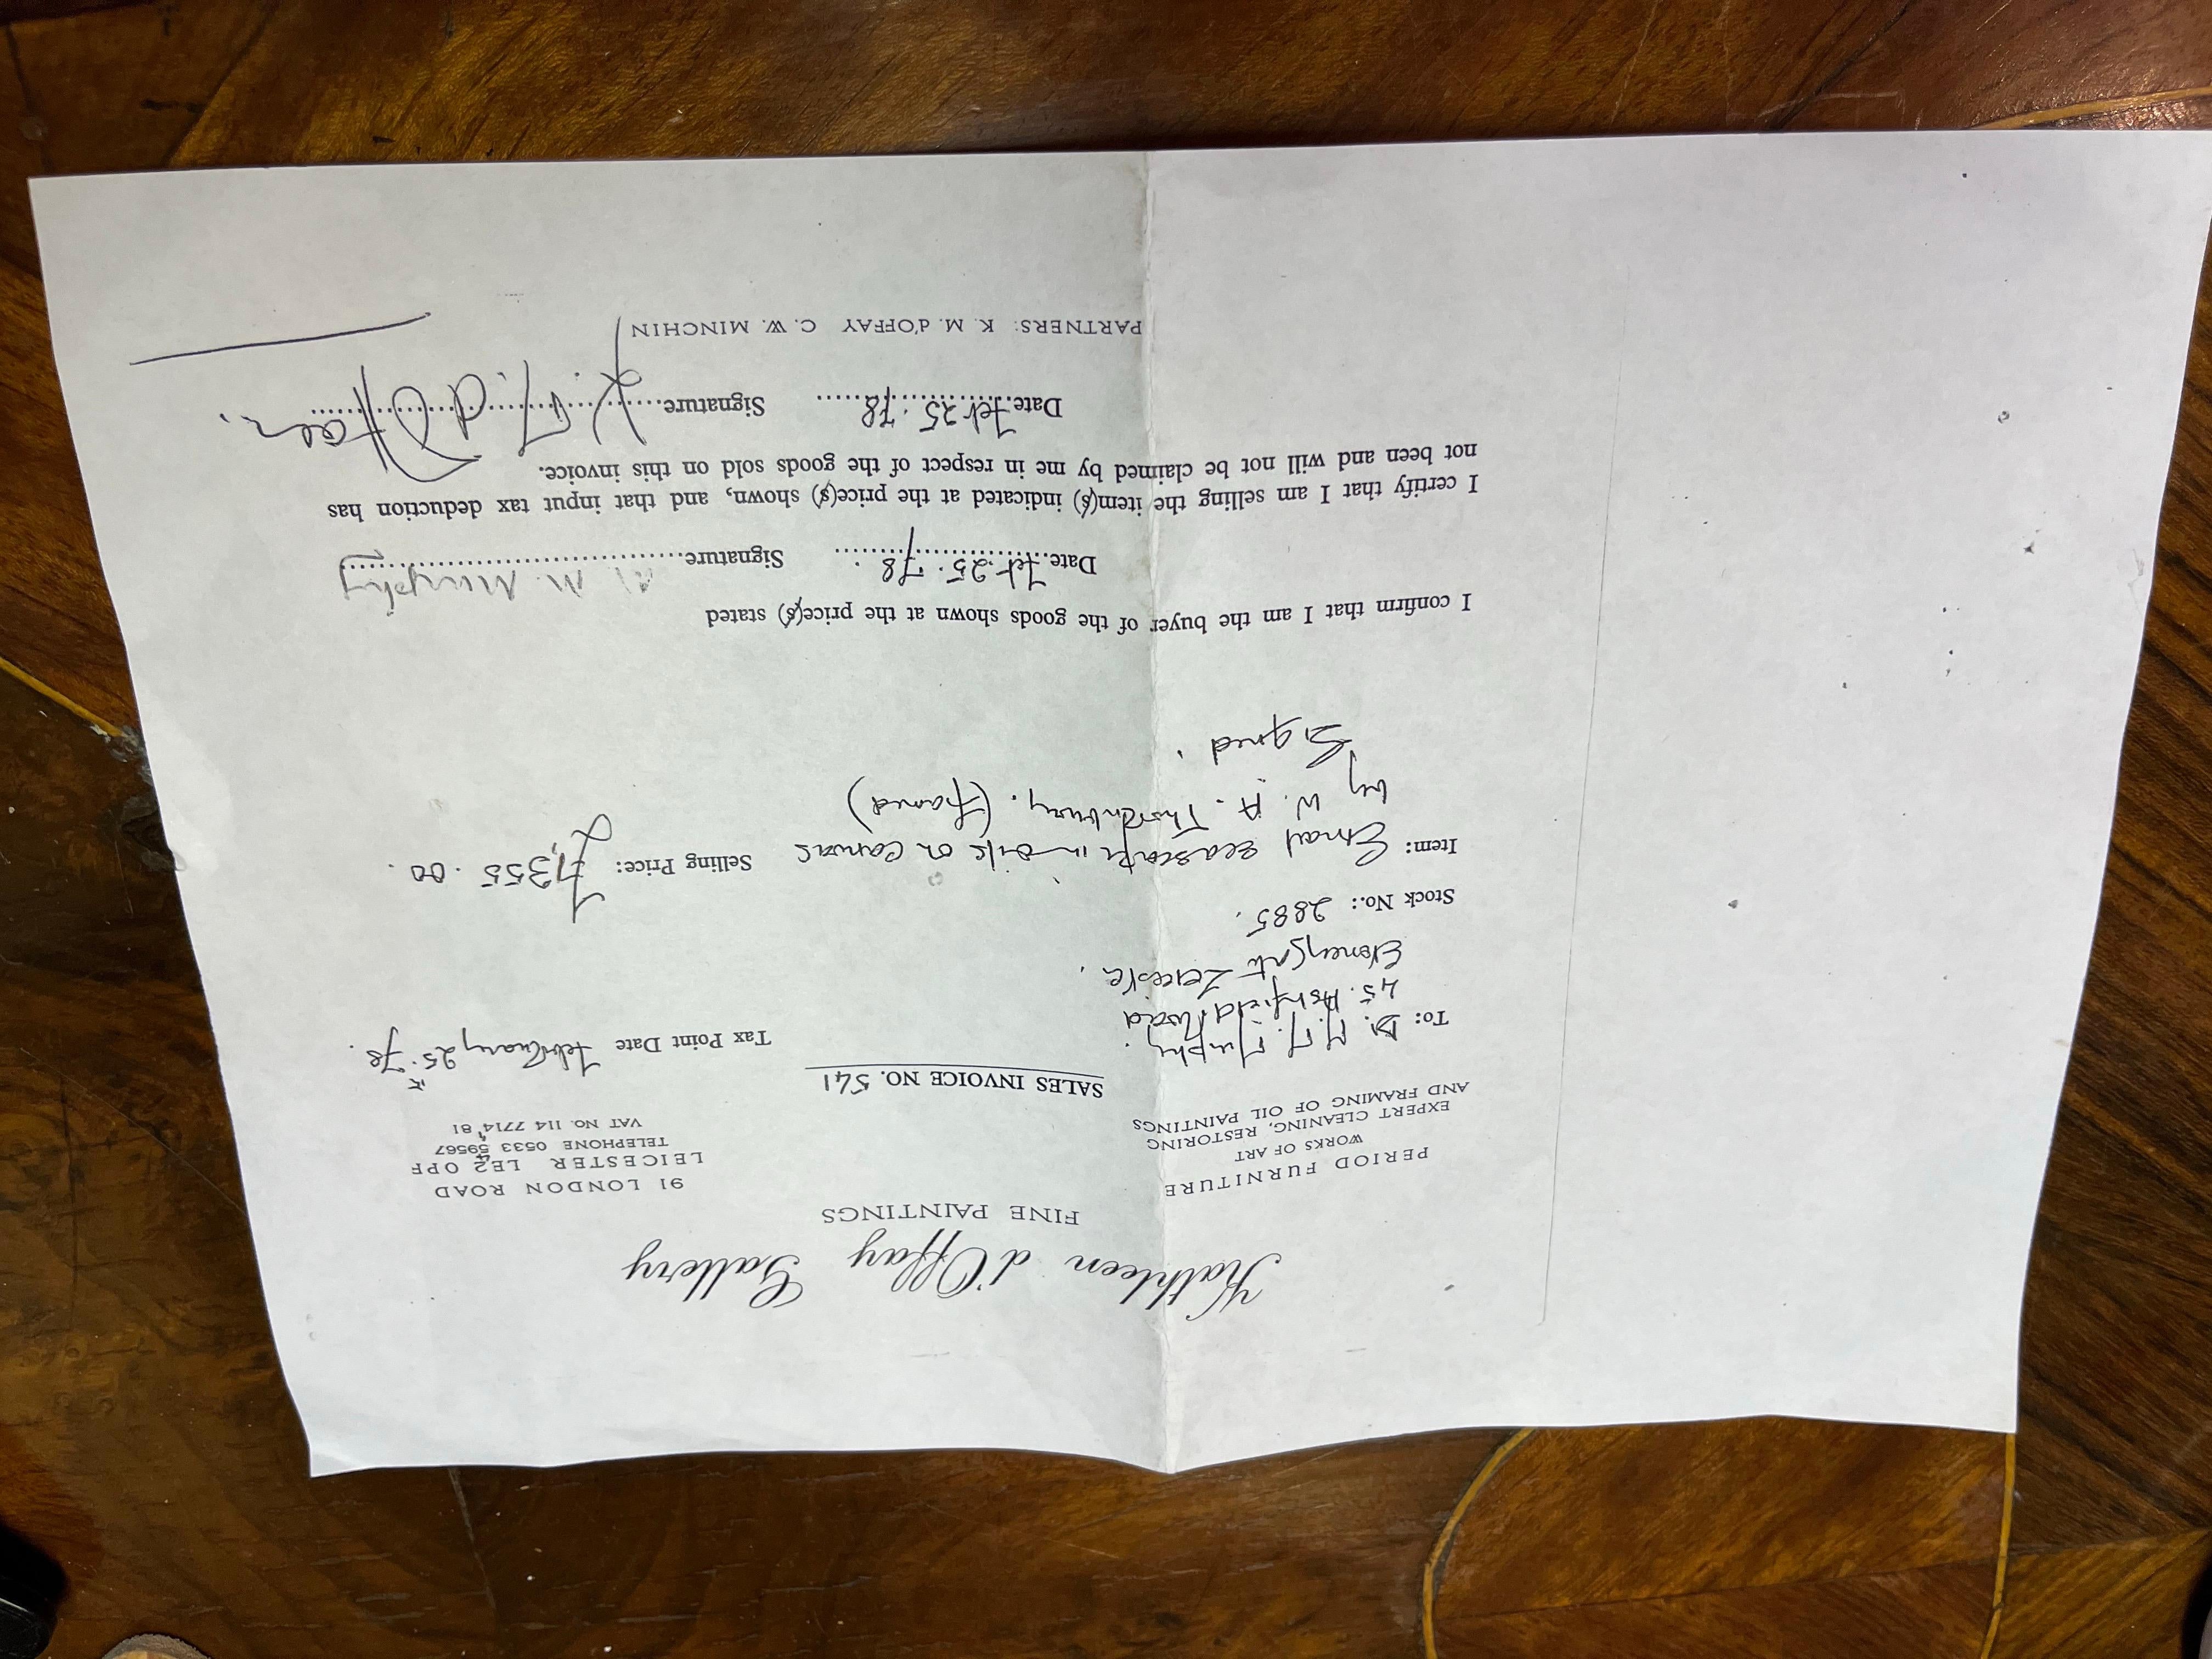 Kathleen d'Offay Gallery
FINE PAINTINGS
PERIOD FURNITURE
WORKS OF ART
EXPERT CLEANING, RESTORING
AND FRAMING OF OIL PAINTINGS
91 LONDON ROAD
LEICESTER LE2 OPF
TELEPHONE 0533 59567
VAT NO. 114 7714 81
SALES INVOICE NO. 541
To: Dr. M. M. Murphy.
45. Ashfield Road
Stoneygate Leicester.
Tax Point Date February 25. 78.
Stock No.: 2885.
Item: Small seascape in oils on canvas
by W. A. Thornbury. (framed)
Signed.
Selling Price: £1,355.00.
I confirm that I am the buyer of the goods shown at the price(s) stated
Date Feb. 25. 78. Signature M. M. Murphy
I certify that I am selling the item(s) indicated at the price(s) shown, and that input tax deduction has
not been and will not be claimed by me in respect of the goods sold on this invoice.
Date Feb 25. 78 Signature K. M. d'Offay.
PARTNERS: K. M. d'OFFAY C. W. MINCHIN